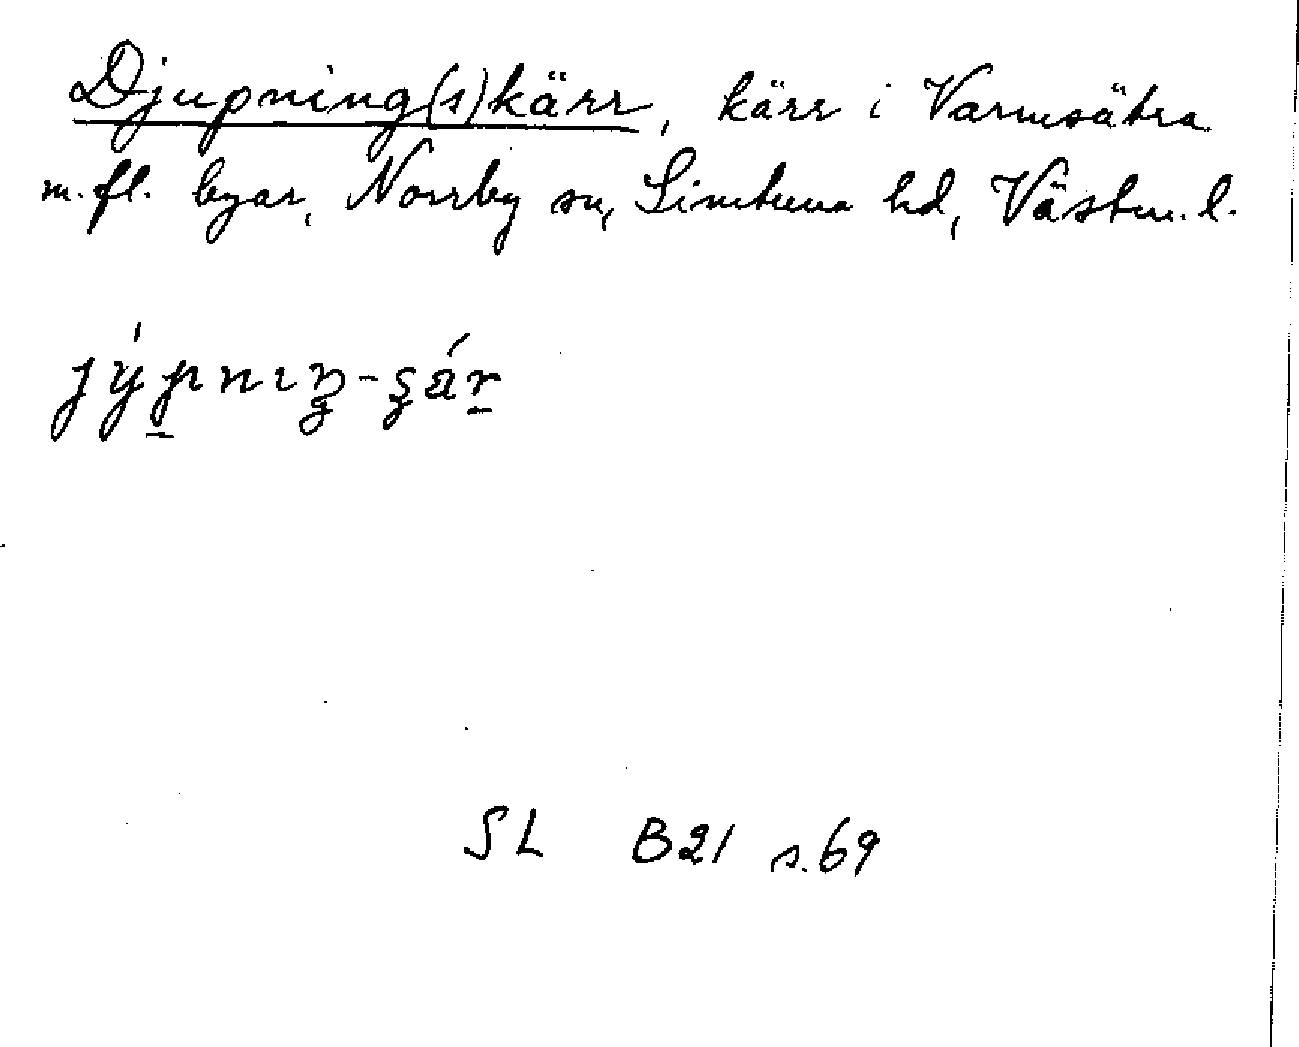 Djupning(s)kärr, kärr i Varmsätra
m.fl. byar, Norrby sn, Simtuna hd, Västm. l.
SL B21 s.69